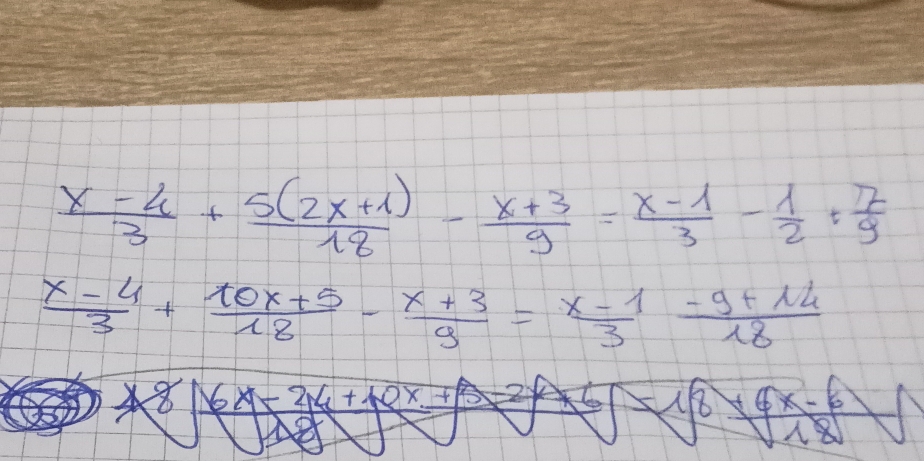 x-4/3 + 5(2x+1)/18 - x+3/9 = x-1/3 - 1/2 + 7/9
x-4/3 + 10x+5/18 - x+3/9 = x-1/3 -9+14/18
18 6x-24+10x+5-2x+6/18 = 18 +6x-6/18